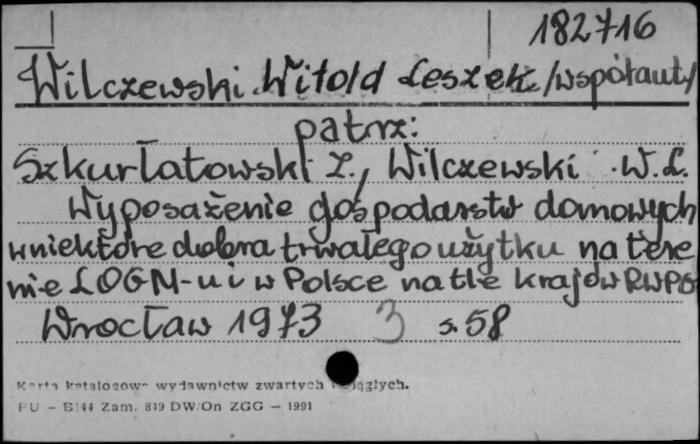 182716
Wilczewski Witold Leszek /współaut/
patrz:
Szkurłatowski Z., Wilczewski W.L.
Wyposażenie gospodarstw domowych
w niektóre dobra trwałego użytku na tere
nie LOGM-u i w Polsce na tle krajów RWPG
Wrocław 1973 3 s. 58
Karta katalogowa wydawnictw zwartych i ciągłych.
PU - B/44 Zam. 849 DW/On ZGG - 1991